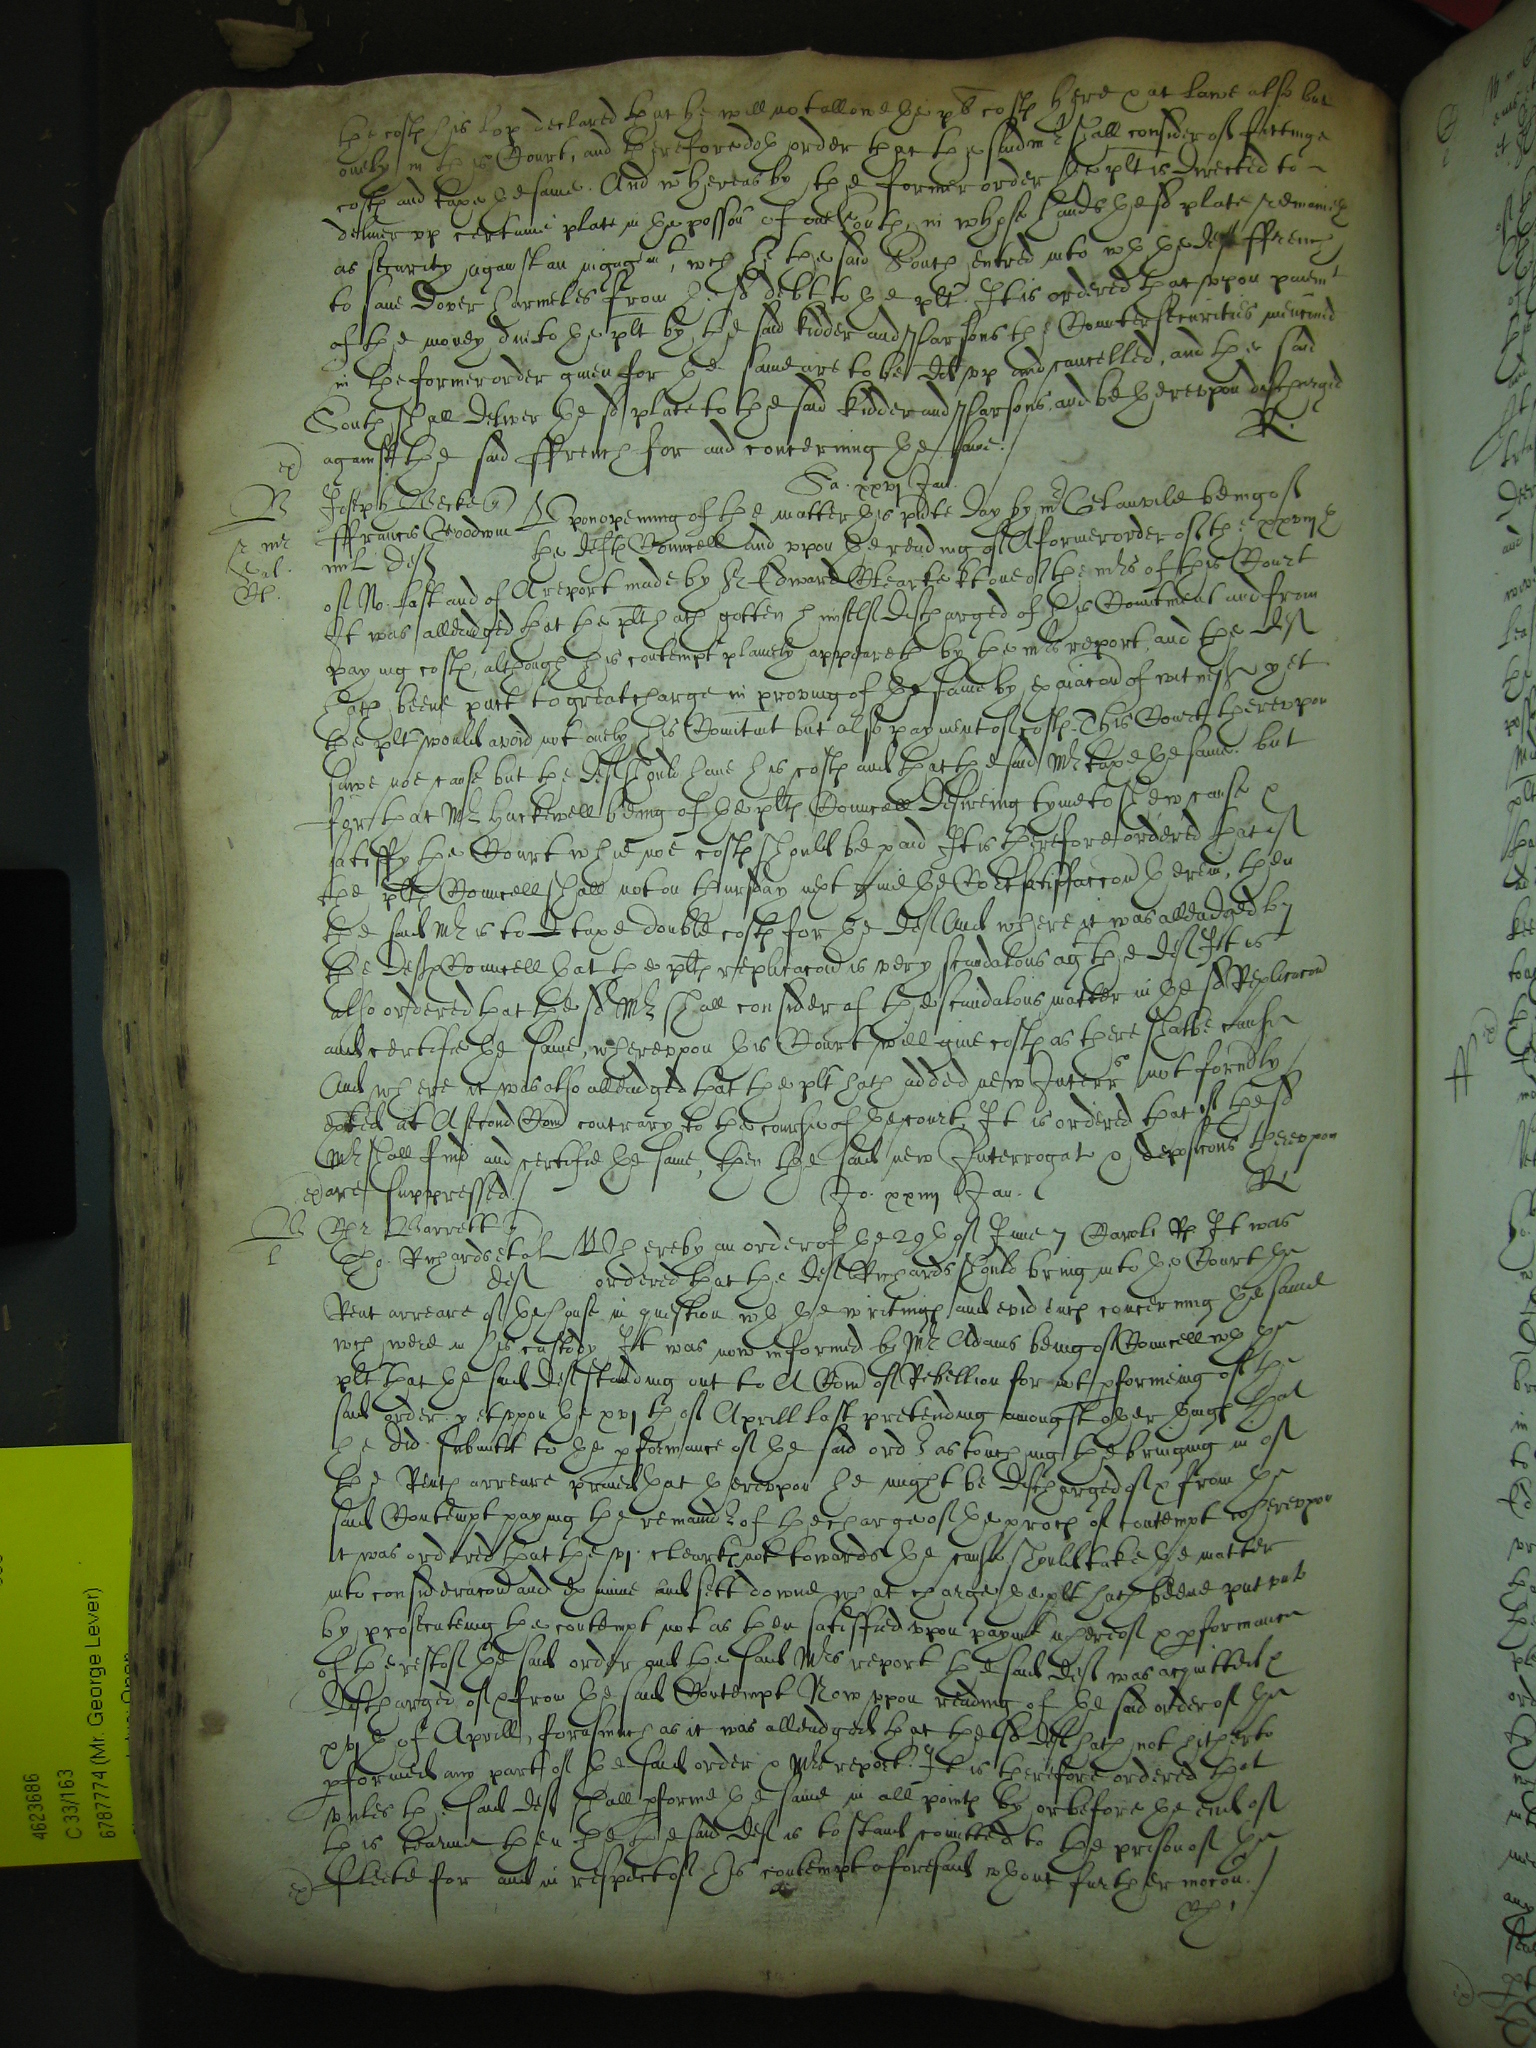 the costs his lop declared that he will not allowe the pl costs here & at lawe also but
onely in this Court, and therefore doth order that the said mr shall consider of fittinge
costs and taxe the same. And whereas by the former order the plt is directed to
deliver up certaine plate in the posson of one South, in whose hands the sd plate remaineth
as security against an ingagemt, wch he the said South entred into wth the def ffrench
to save Dover harmeles from the sd debt to the plt. It is ordered that upon paiemt
of the money due to the plt by the said Kidder and Parsons the Countersecurities mencined
in the former order given for the same are to be del up and cancelled, and the said
South shall deliver the sd plate to the said Kidder and Parsons, and be thereupon discharged
against the said ffrench for and concerning the same.
R.
Sa. xxvj Jan.
Joseph
ffrancis Goodwin
mil def
Upon opening of the matter this pnte day by mr being of
the defts Councell and uppon the reading of A former order of the xxviijth
of No. last and of A report made by Sr Edward kt one of the mrs of this Court
It was alleadged that the plt hath gotten himselfe discharged of his Comitment and from
paying costs, although his contempt plainely appeareth by the mrs report, and the def
hath beene putt to great charge in proving of the same by exaiacon of witnesses yet
the plt would avoid not onely his Comitmt but also payment of costs. This Court thereupon
sawe noe cause but the def should have his costs and that the said Mr taxe the same. but
for that Mr Hackewell being of the plts Councell desireing tyme to shew cause &
satisfy the Court whie noe costs should be paid It is therefore ordered that if
the plts Councell shall not on thursday next give the Cort satisfaccon herein, then
the said Mr is to taxe double costs for the def And where it was alleadged by
the defts Councell that the plts replicacon is very scandalous agt the def It is
also ordered that the sd Mr shall consider of the scandalous matter in the sd Replicacon
and certifie the same, whereuppon this Court will give costs as there shalbe cause
And where it was also alleadged that the plt hath added new Interrs not formrly
at A second Com contrary to the course of the court. It is ordered that if the sd
Mr shall find and certifie the same, then the said new Interrogat & deposicons thereupon
are suppressed.
R
Jo. xxviij Jan.
Barrett
Tho. Richards et al
def
Whereby an order of the 29th of June 7 Caroli R It was
ordered that the def Richards should bring into the Court the
Rent arreare of the house in question wth the writings and evidencs concerning the same
wch were in his custody It was now informed by Mr Adams being of Councell wth the
plt that the said def standing out to A Com of Rebellion for not pformeing of the
said order. yet uppon the xvjth of Aprill last pretending amongst other things that
he did submitt to the pformance of the said order as touching the bringing in of
the Rents arreare praied that thereuppon he might be discharged of & from the
said Contempt paying the remaindr of the charge of the proces of contempt whereupon
it was ordered that the vj. clearks not towards the cause should take the matter
into consideracon and exmine and sett downe what charge the plt hath beene put unto
by prosecuteing the contempt not as then satisfied uppon paymt whereof & pformance
of the rest of the said order and the said Mrs report the said def was acquitted &
discharged of & from the said Contempt Now uppon reading of the said order of the
xvjth of Aprill, forasmuch as it was alleadged that the sd def hath not hitherto
pformed any part of the said order & Mrs report. It is therefore ordered that
unles the said def shall pforme the same in all points by or before the end of
this tearme then he the said def is to stand comitted to the prison of the
ffleete for and in respect of his contempt aforesaid wthout further mocon.
4623686
C 33/163
6787774 (Mr. George Lever)